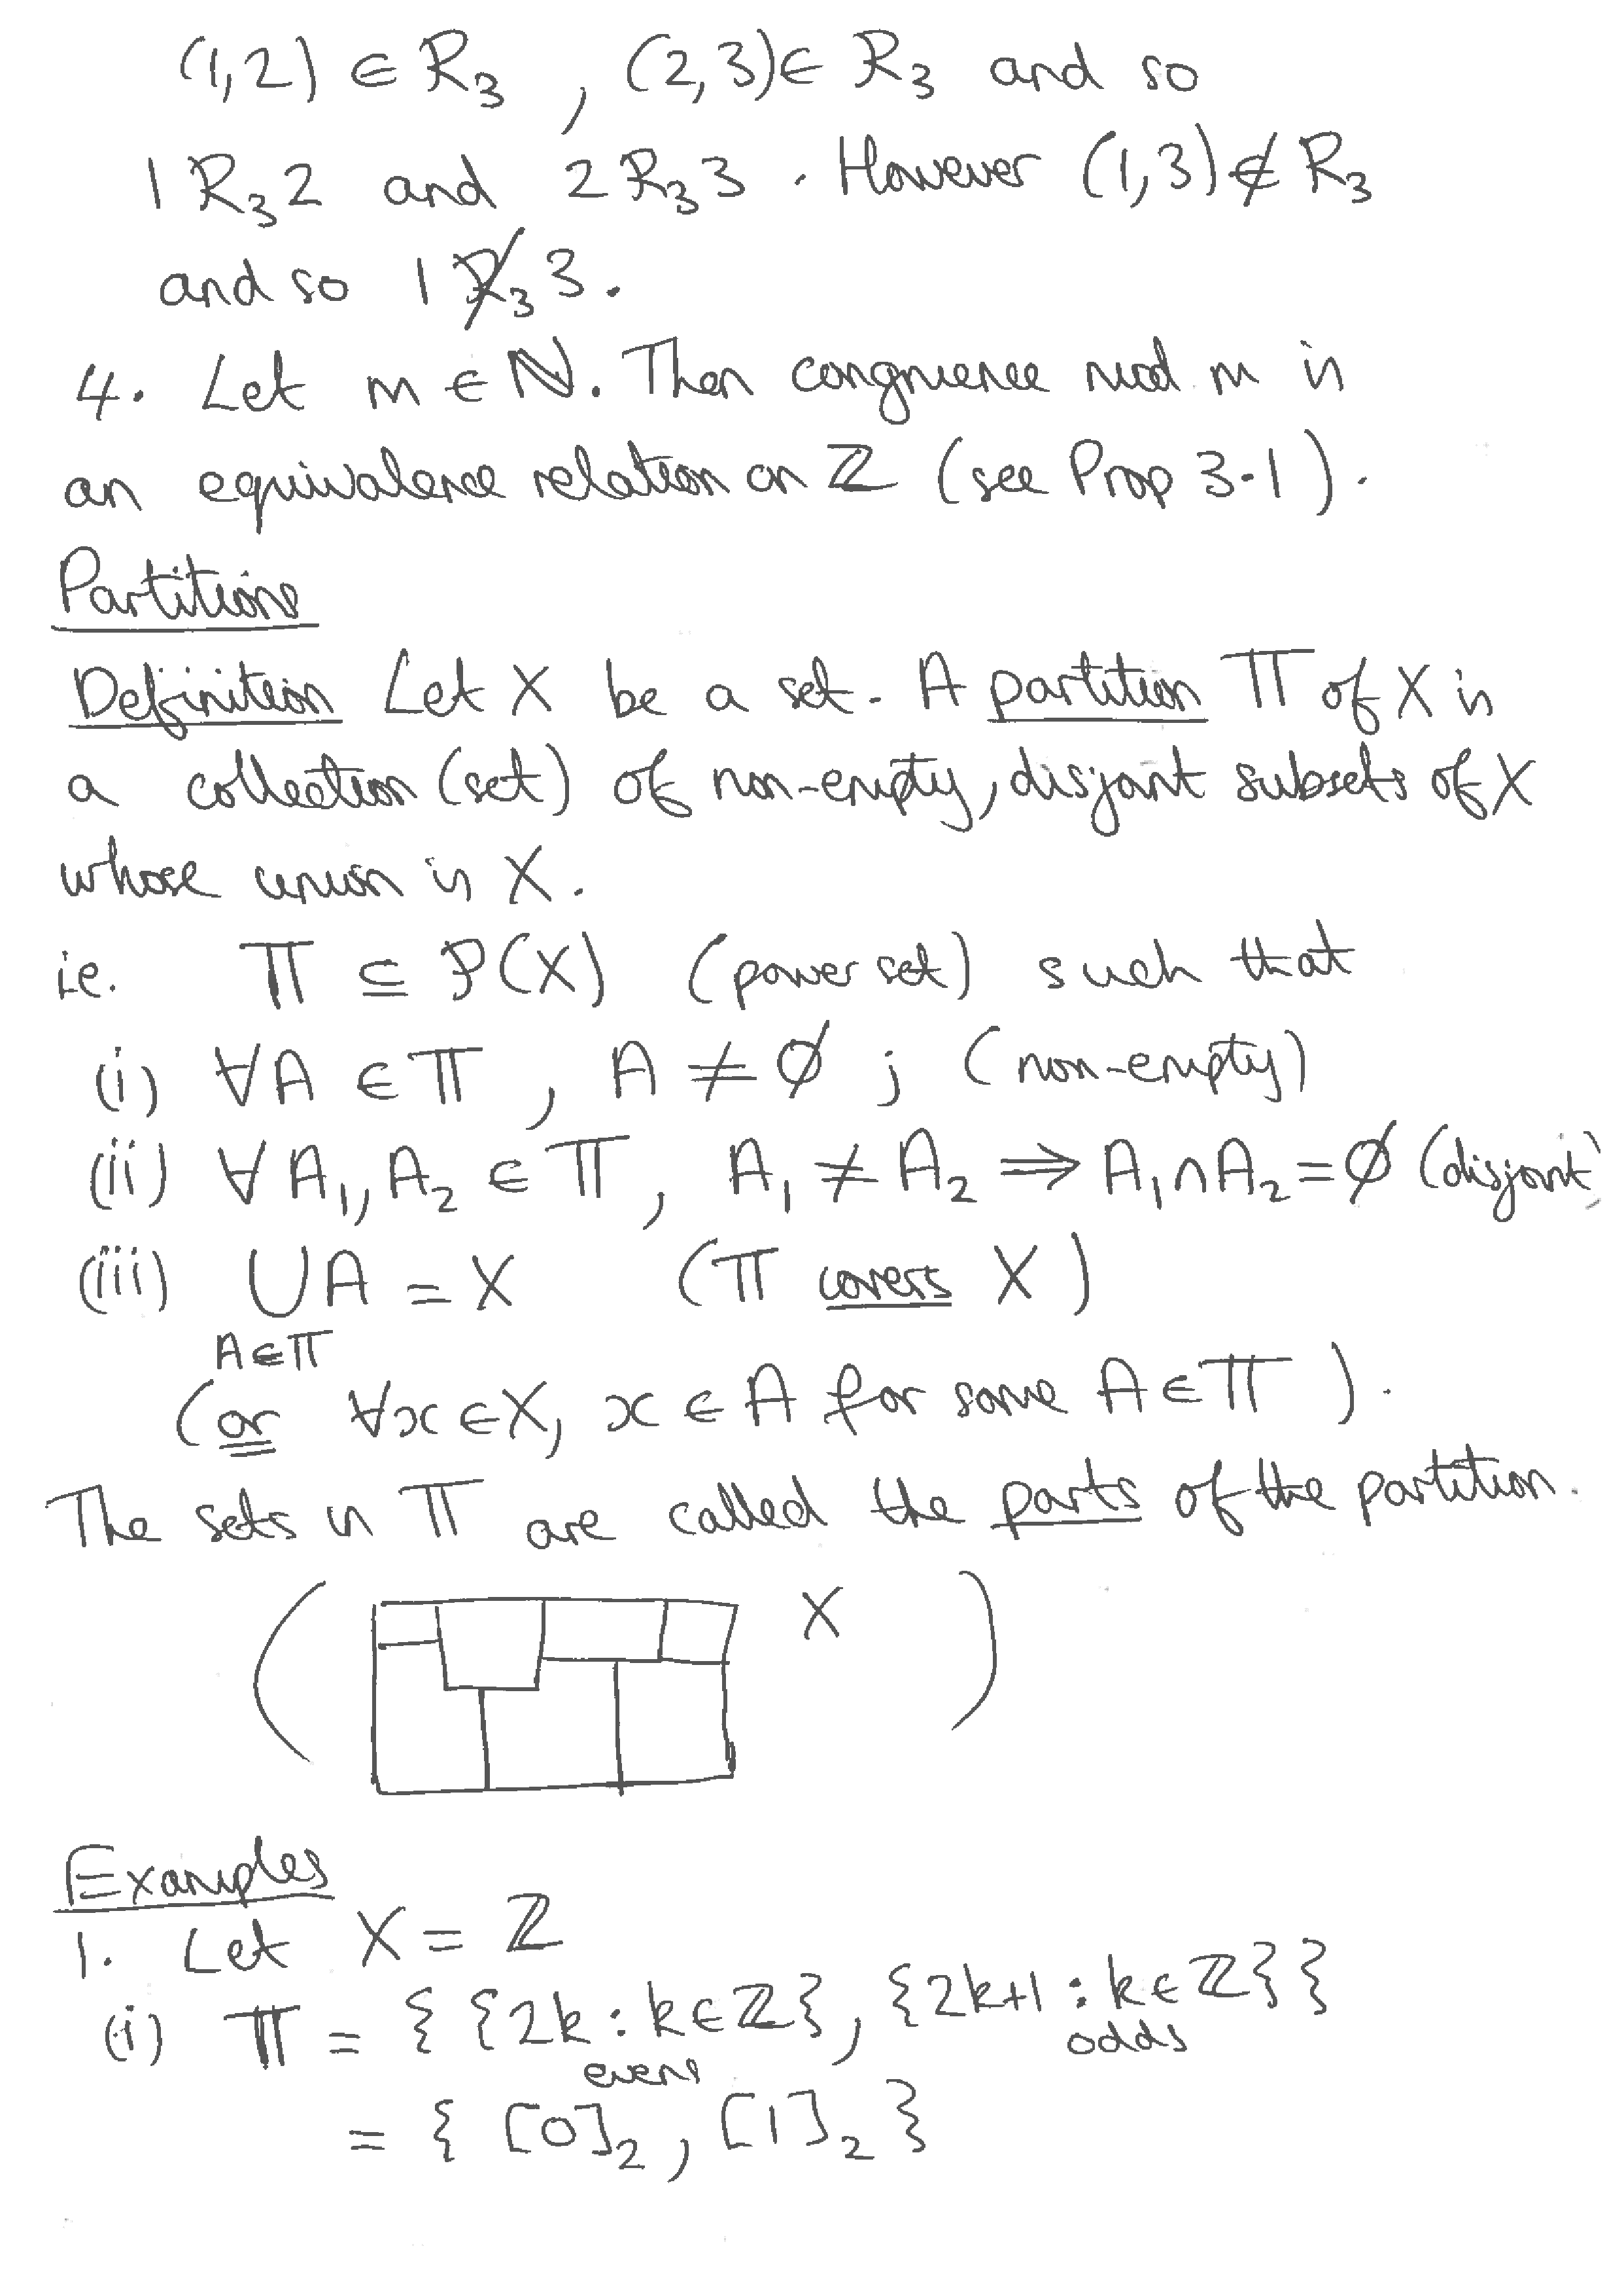 (1,2) ∈ R₃ , (2,3) ∈ R₃ and so
1 R₃ 2 and 2 R₃ 3 . However (1,3) ∉ R₃
and so 1 R̸₃ 3 .
4. Let m ∈ ℕ. Then congruence mod m is
an equivalence relation on ℤ (see Prop 3.1).
Partitions
Definition Let X be a set. A partition Π of X is
a collection (set) of non-empty, disjoint subsets of X
whose union is X.
i.e. Π ⊆ P(X) (power set) such that
(i) ∀A ∈ Π , A ≠ ∅ ; (non-empty)
(ii) ∀ A₁, A₂ ∈ Π, A₁ ≠ A₂ ⇒ A₁ ∩ A₂ = ∅ (disjoint)
(iii) ∪ A = X (Π covers X)
A∈Π
(or ∀x ∈ X, x ∈ A for some A ∈ Π).
The sets in Π are called the parts of the partition.
( X )
Examples
1. Let X = ℤ
(i) Π = { {2k : k ∈ ℤ}, {2k+1 : k ∈ ℤ} }
evens odds
= { [0]₂, [1]₂ }